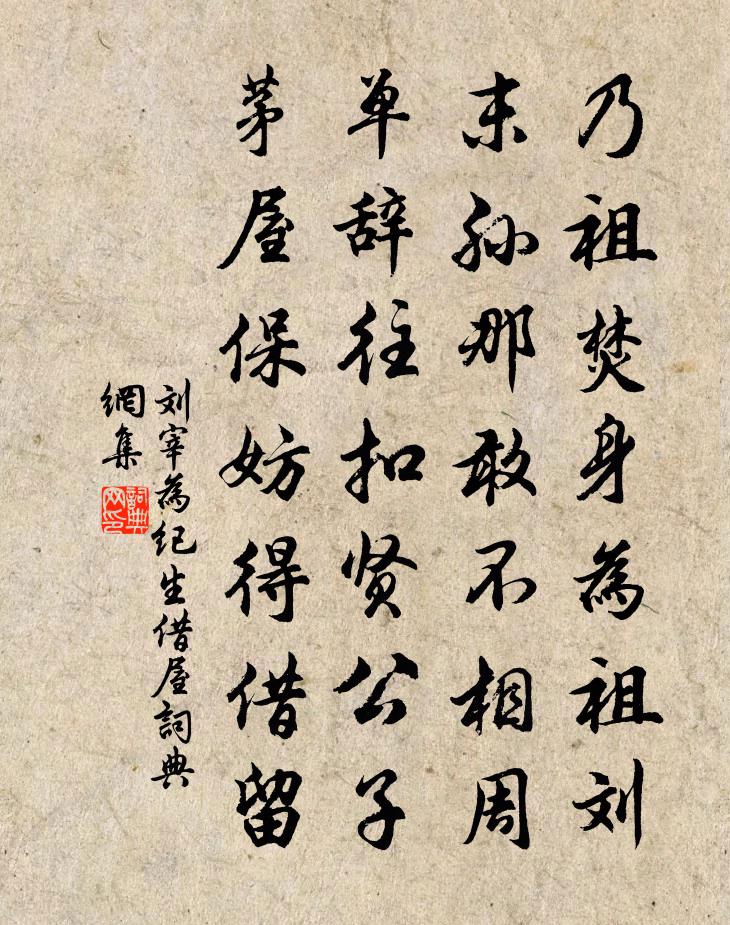 乃祖焚身为祖刘
末孙那敢不相周
单辞往扣贤公子
茅屋保妨得借留
刘宰为纪生借屋詞典
網集
詞典
网印